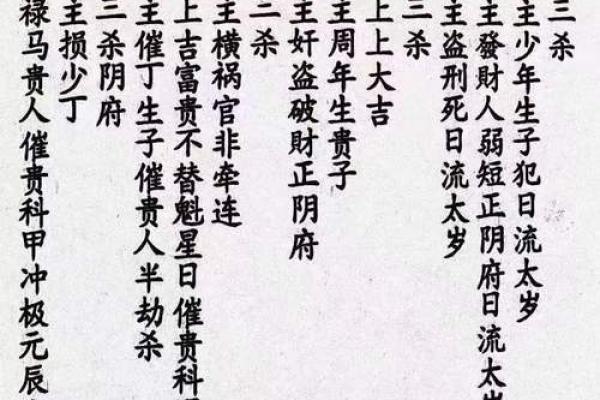 三杀
主少年生子犯日流太岁
主發財人弱短正阴府日流太岁
主盗刑死日流太岁
三杀
上上大吉
主周年生贵子
主奸盗破財正阴府
二杀
主横祸官非牵连
上吉富贵不替魁星日催贵科
主催丁生子催贵人半劫杀
三杀阴府
主损少丁
禄马贵人催贵科甲冲极元辰